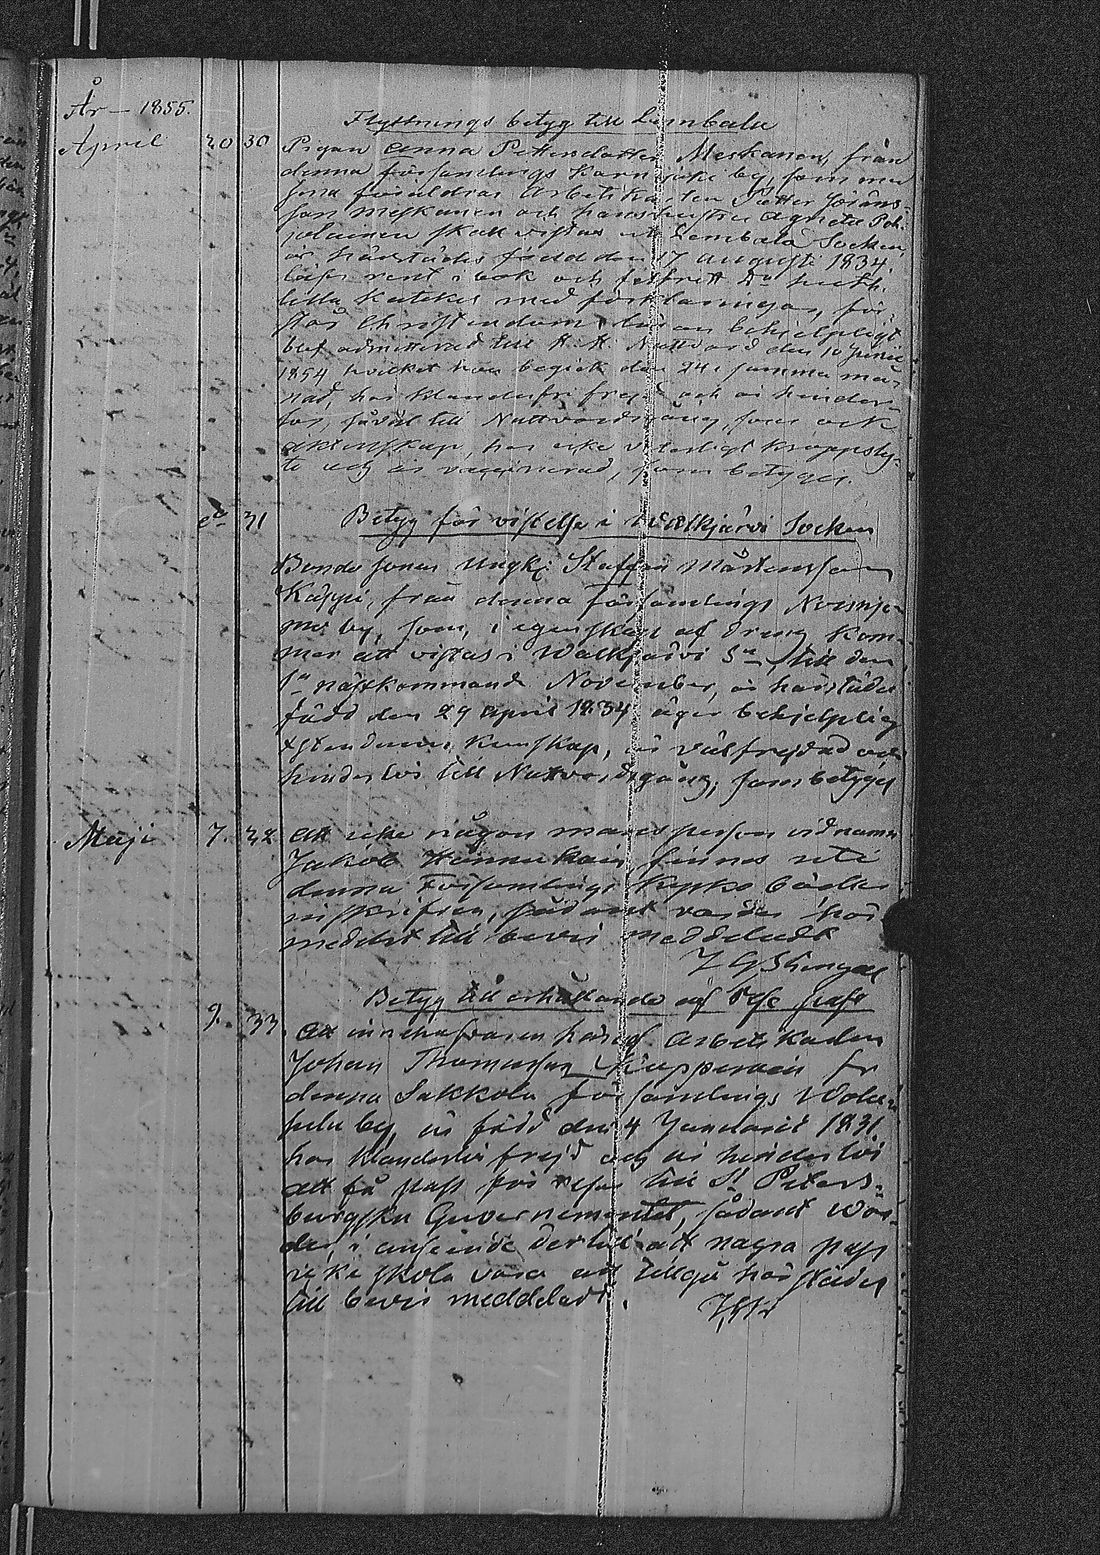 År – 1855.
Flyttnings betyg till Lembala
April 20 30 Pigan Anna Pettersdotter Meskanen, från
denna församlings by, som med
sina föräldrar Arbetskarlen Petter Jöransson
Meskanen och hans hustru Agneta Poh-
jolainen skall vistas i Lembala Socken
är härstädes född den 17 augusti 1834.
läser rent i bok och Do Luth.
lilla Katekes med förklaringar, för-
står Christendoms läran behjelpligt
blef admitterad till H. H. Nattvard den 10 Junii
1854 hvilket hon begick den 24 i samma må-
nad, har klanderfri frejd och är hinder-
lös, såväl till Nattvardsgång, som ock
äktenskap, har icke vederligt kroppsly-
te och är vaccinerad, som betygas.
do 31 Betyg för vistelse i Walkjärvi Socken
Bonde sonen Ungk: Staffan Mårtensson
Käppi, från denna församlings
by, som, i egenskap af dräng kom-
mer att vistas i Walkjärvi Sn till den
1n nästkommande November, är härstädes
född den 29 april 1834 äger behjelplig
Xstendoms kunskap, är välfrejdad och
hinderlös till Nattvardsgång, som betygas
Maji 7. 32 Att icke någon mansperson vid namn
Jakob finnes uti
denna Församlings Kyrko böcker
inskrifven, sådant varder här
medelst till bevis meddeladt
Betyg till erhållande af Rese pass
9. 33. Att innehafvaren häraf Arbetskarlen
Johan Thomasson Kapperoin fr
denna Sakkola församlings
by, är född den 4 Januarii 1831.
har klanderfri frejd och är hinderlös
att få pass för resa till St Peters-
burgska Guvernementet, sådant var-
der, i anseende dertill att några pass
icke skola vara att tillgå härstädes
till bevis meddeladt.